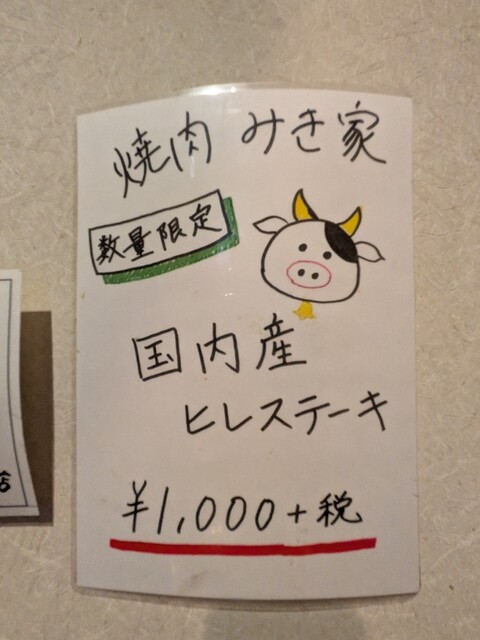 焼肉 みき家
数量限定
国内産
ヒレステーキ
¥1,000+税
店